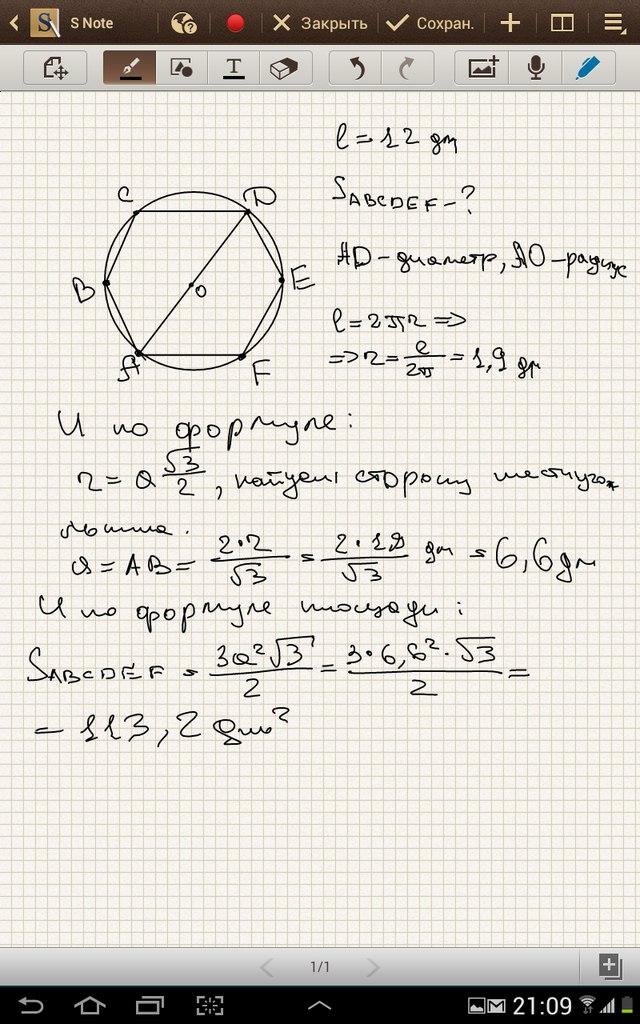 S Note
Закрыть
Сохран.
T
l = 12 дм
S ABCDEF - ?
AD - диаметр, AO - радиус
l = 2πr =>
=> r = l/2π = 1,9 дм
C
D
B
O
E
A
F
И по формуле:
r = a √3/2, найдем сторону шестиуголь
ника.
a = AB = 2·r/√3 = 2·19/√3 дм = 6,6 дм
И по формуле площади:
S ABCDEF = 3a²√3/2 = 3·6,6²·√3/2 =
= 113,2 дм²
1/1
21:09